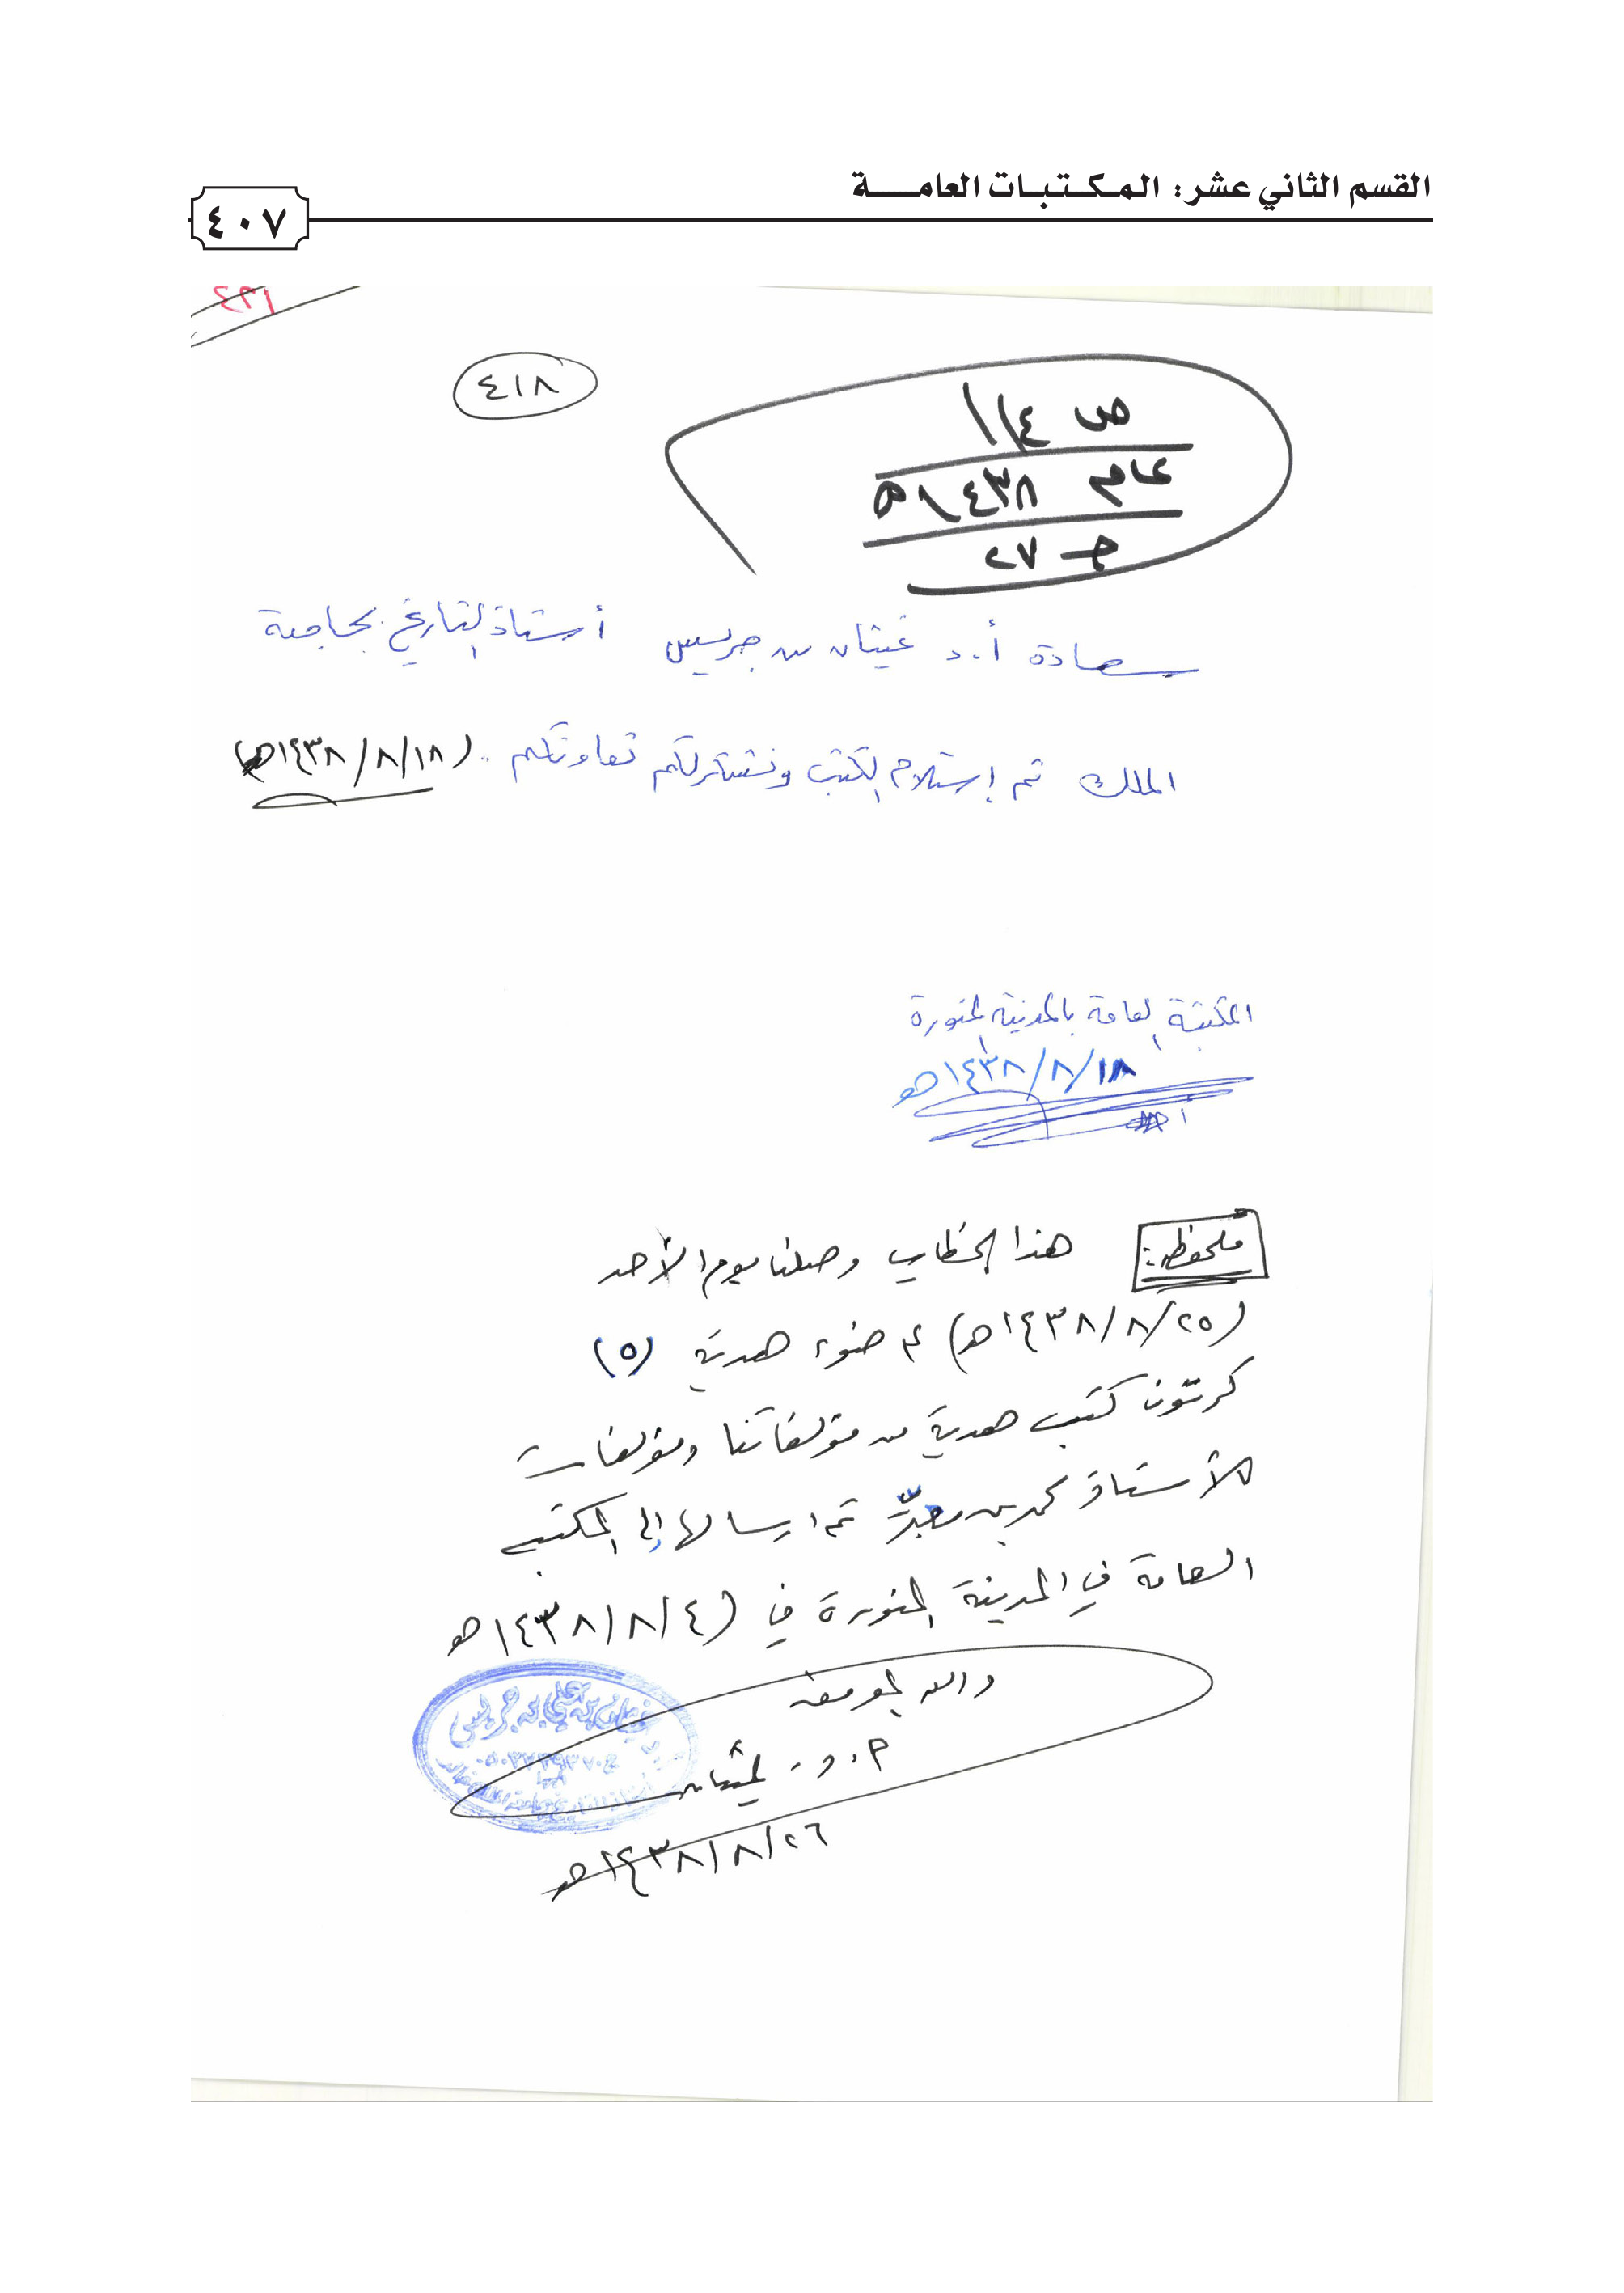 القسم الثاني عشر: المكتبات العامة
٤٠٧
٤٢١
٤١٨
ص ١١٤
عام ١٤٣٨هـ
جـ ٢٧
سعادة أ.د غيثان بن جريس أستاذ التاريخ بجامعة
الملك تم إستلام الكتب ونشكر لكم تعاونكم .. (١٤٣٨/٨/١٨هـ)
المكتبة العامة بالمدينة المنورة
١٤٣٨/٨/١٨هـ
ملحوظة: هذا الخطاب وصلنا يوم الأحد
(١٤٣٨/٨/٢٥هـ) ضوء هدية (٥)
كرتون كتب هدية من مؤلفاتنا ومؤلفات
الأستاذ محمد بن معبّر تم ارسالها إلى المكتبة
العامة في المدينة المنورة في (١٤٣٨/٨/٤هـ
والله الموفق
أ.د. غيثان
غيثان بن علي بن جريس
١٤٣٨/٨/٢٦هـ